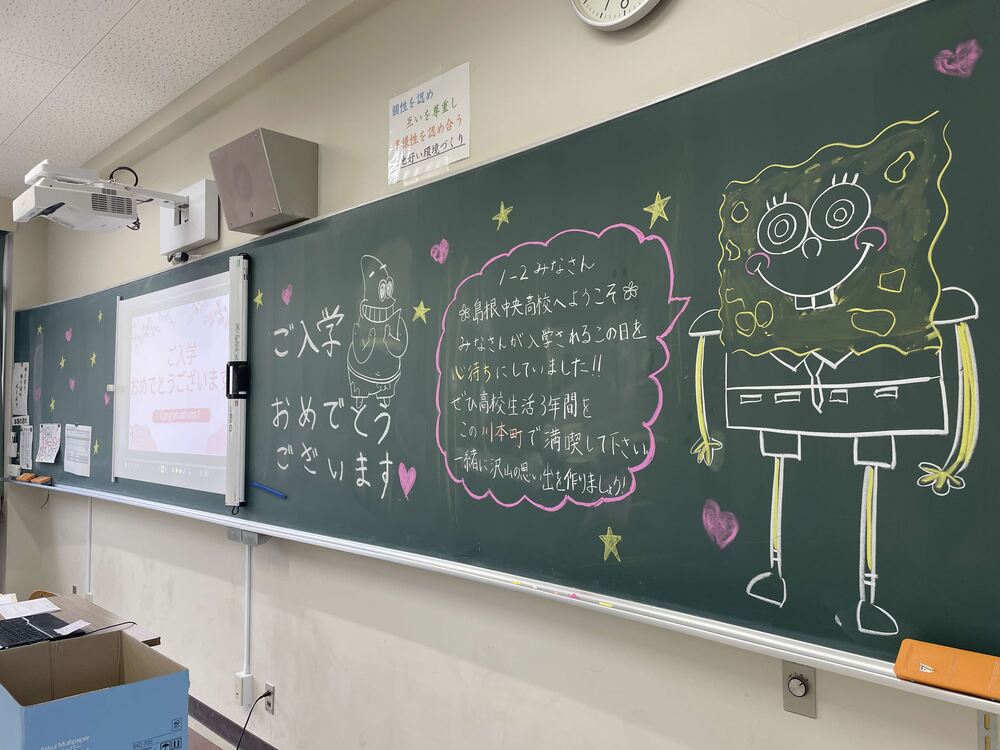 個性を認め
互いを尊重し
多様性を認め合う
ご入学
おめでとうございます
Congratulations!
ご入学
おめでとう
ございます
1-2 みなさん
島根中央高校へようこそ
みなさんが入学されるこの日を
心待ちにしていました!!
ぜひ高校生活3年間を
この川本町で満喫して下さい。
一緒に沢山の思い出を作りましょう!
Askul Multipaper